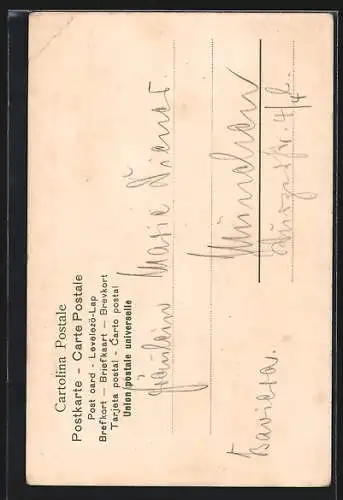 Cartolina Postale
Postkarte - Carte Postale
Post card - Levelező-Lap
Brefkort — Briefkaart — Brevkort
Tarjeta postal - Carto postal
Union postale universelle
Fräulein Marie
München
4/
Baviera.